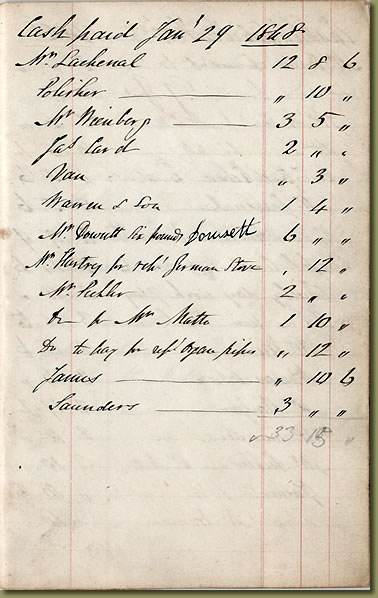 Cash paid Jany 29 1868
Mr Lachenal 12 8 6
Polisher " 10 "
Mr Nienberg 3 5 "
Jas Card 2 " "
Van " 3 "
Warren & Son 1 4 "
Mr Dowsett six pounds Dowsett 6 " "
Mr Hartry for German Stove , 12 "
Mr 2 " "
Do for Mr 1 10 "
Do to pay for Organ pipes " 12 "
James " 10 6
Saunders 3 " "
33 15 "